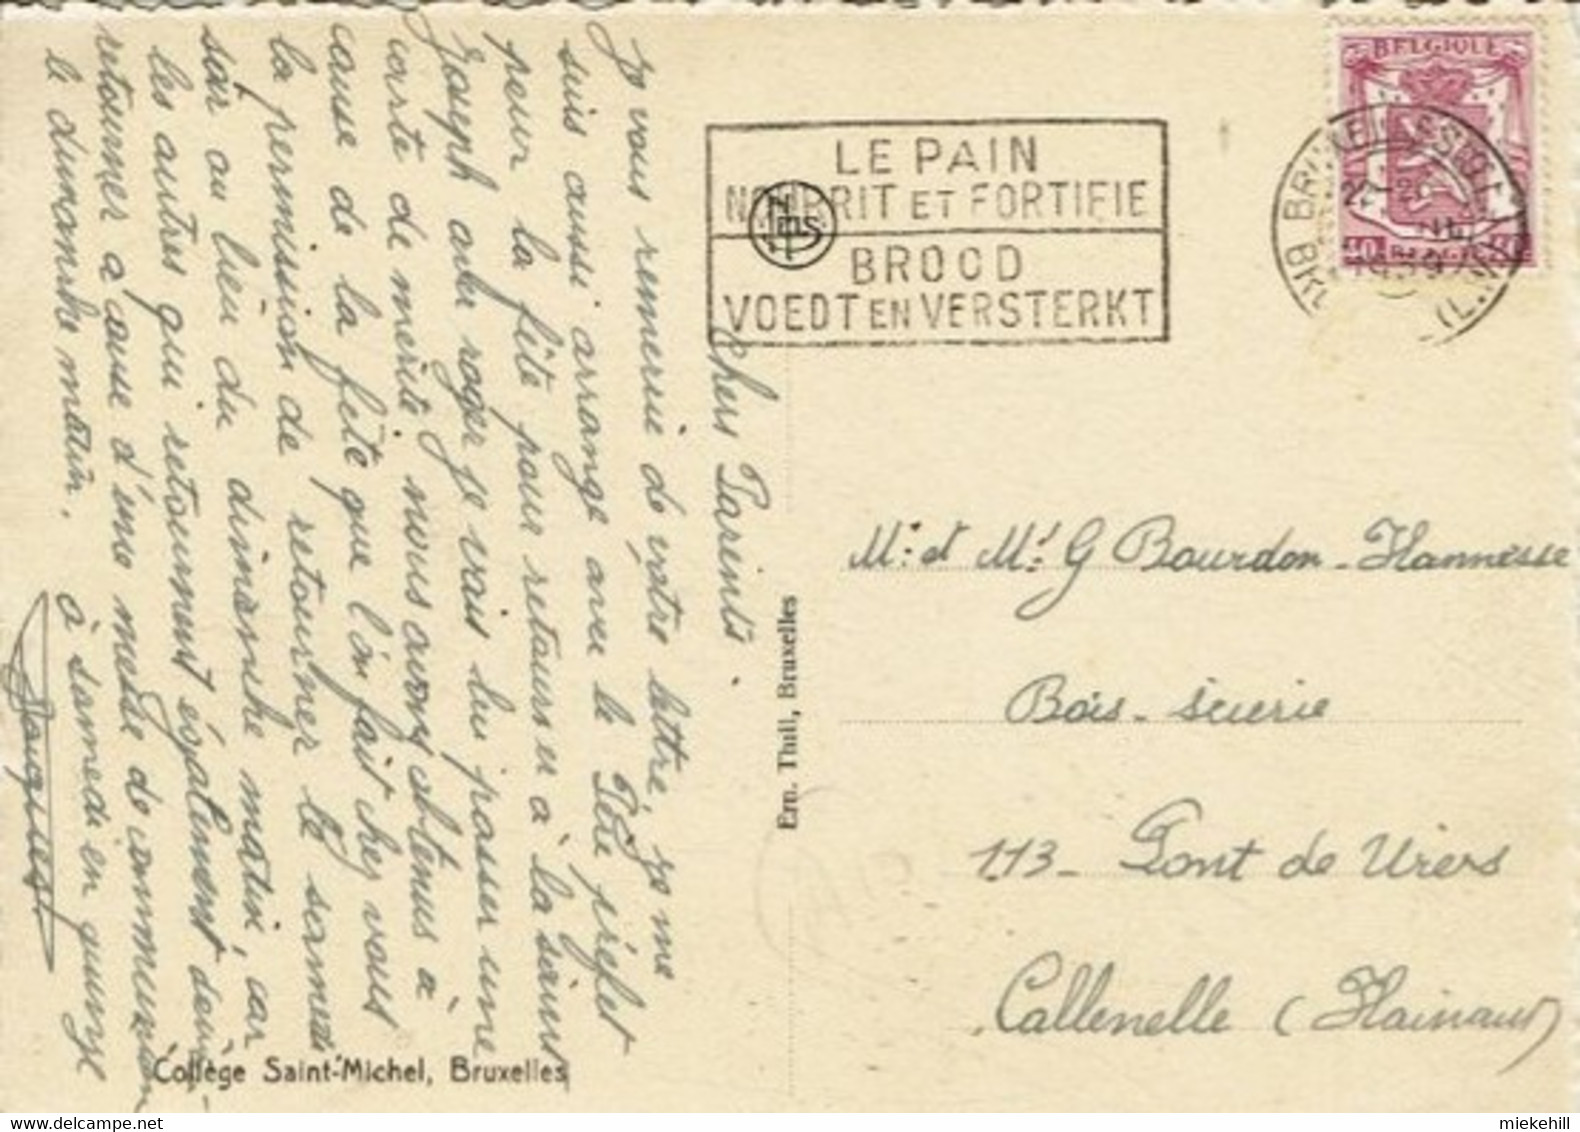 Chers Parents.
Je vous remercie de votre lettre, je me
suis aussi arrangé avec le Père préfet
pour la fête pour retourner à la saint
Joseph avec roger je vais lui passer une
carte de mérite nous avons obtenus à
cause de la fête que l'on fait chez vous
la permission de retourner le samedi
soir au lieu du dimanche matin, car
les autres qui retournent également doivent
retourner à cause d'une messe de communion
le dimanche matin. à samedi en quinze
Jacques
Collège Saint-Michel, Bruxelles
Ern. Thill, Bruxelles
LE PAIN
NOURRIT ET FORTIFIE
BROOD
VOEDT EN VERSTERKT
BELGIQUE
40 BELGIE 40
1939
Mr. et Me G Bourdon-Hannesse
Bois-scierie
113- Pont de Viers
Callenelle (Hainaut)
miekehill